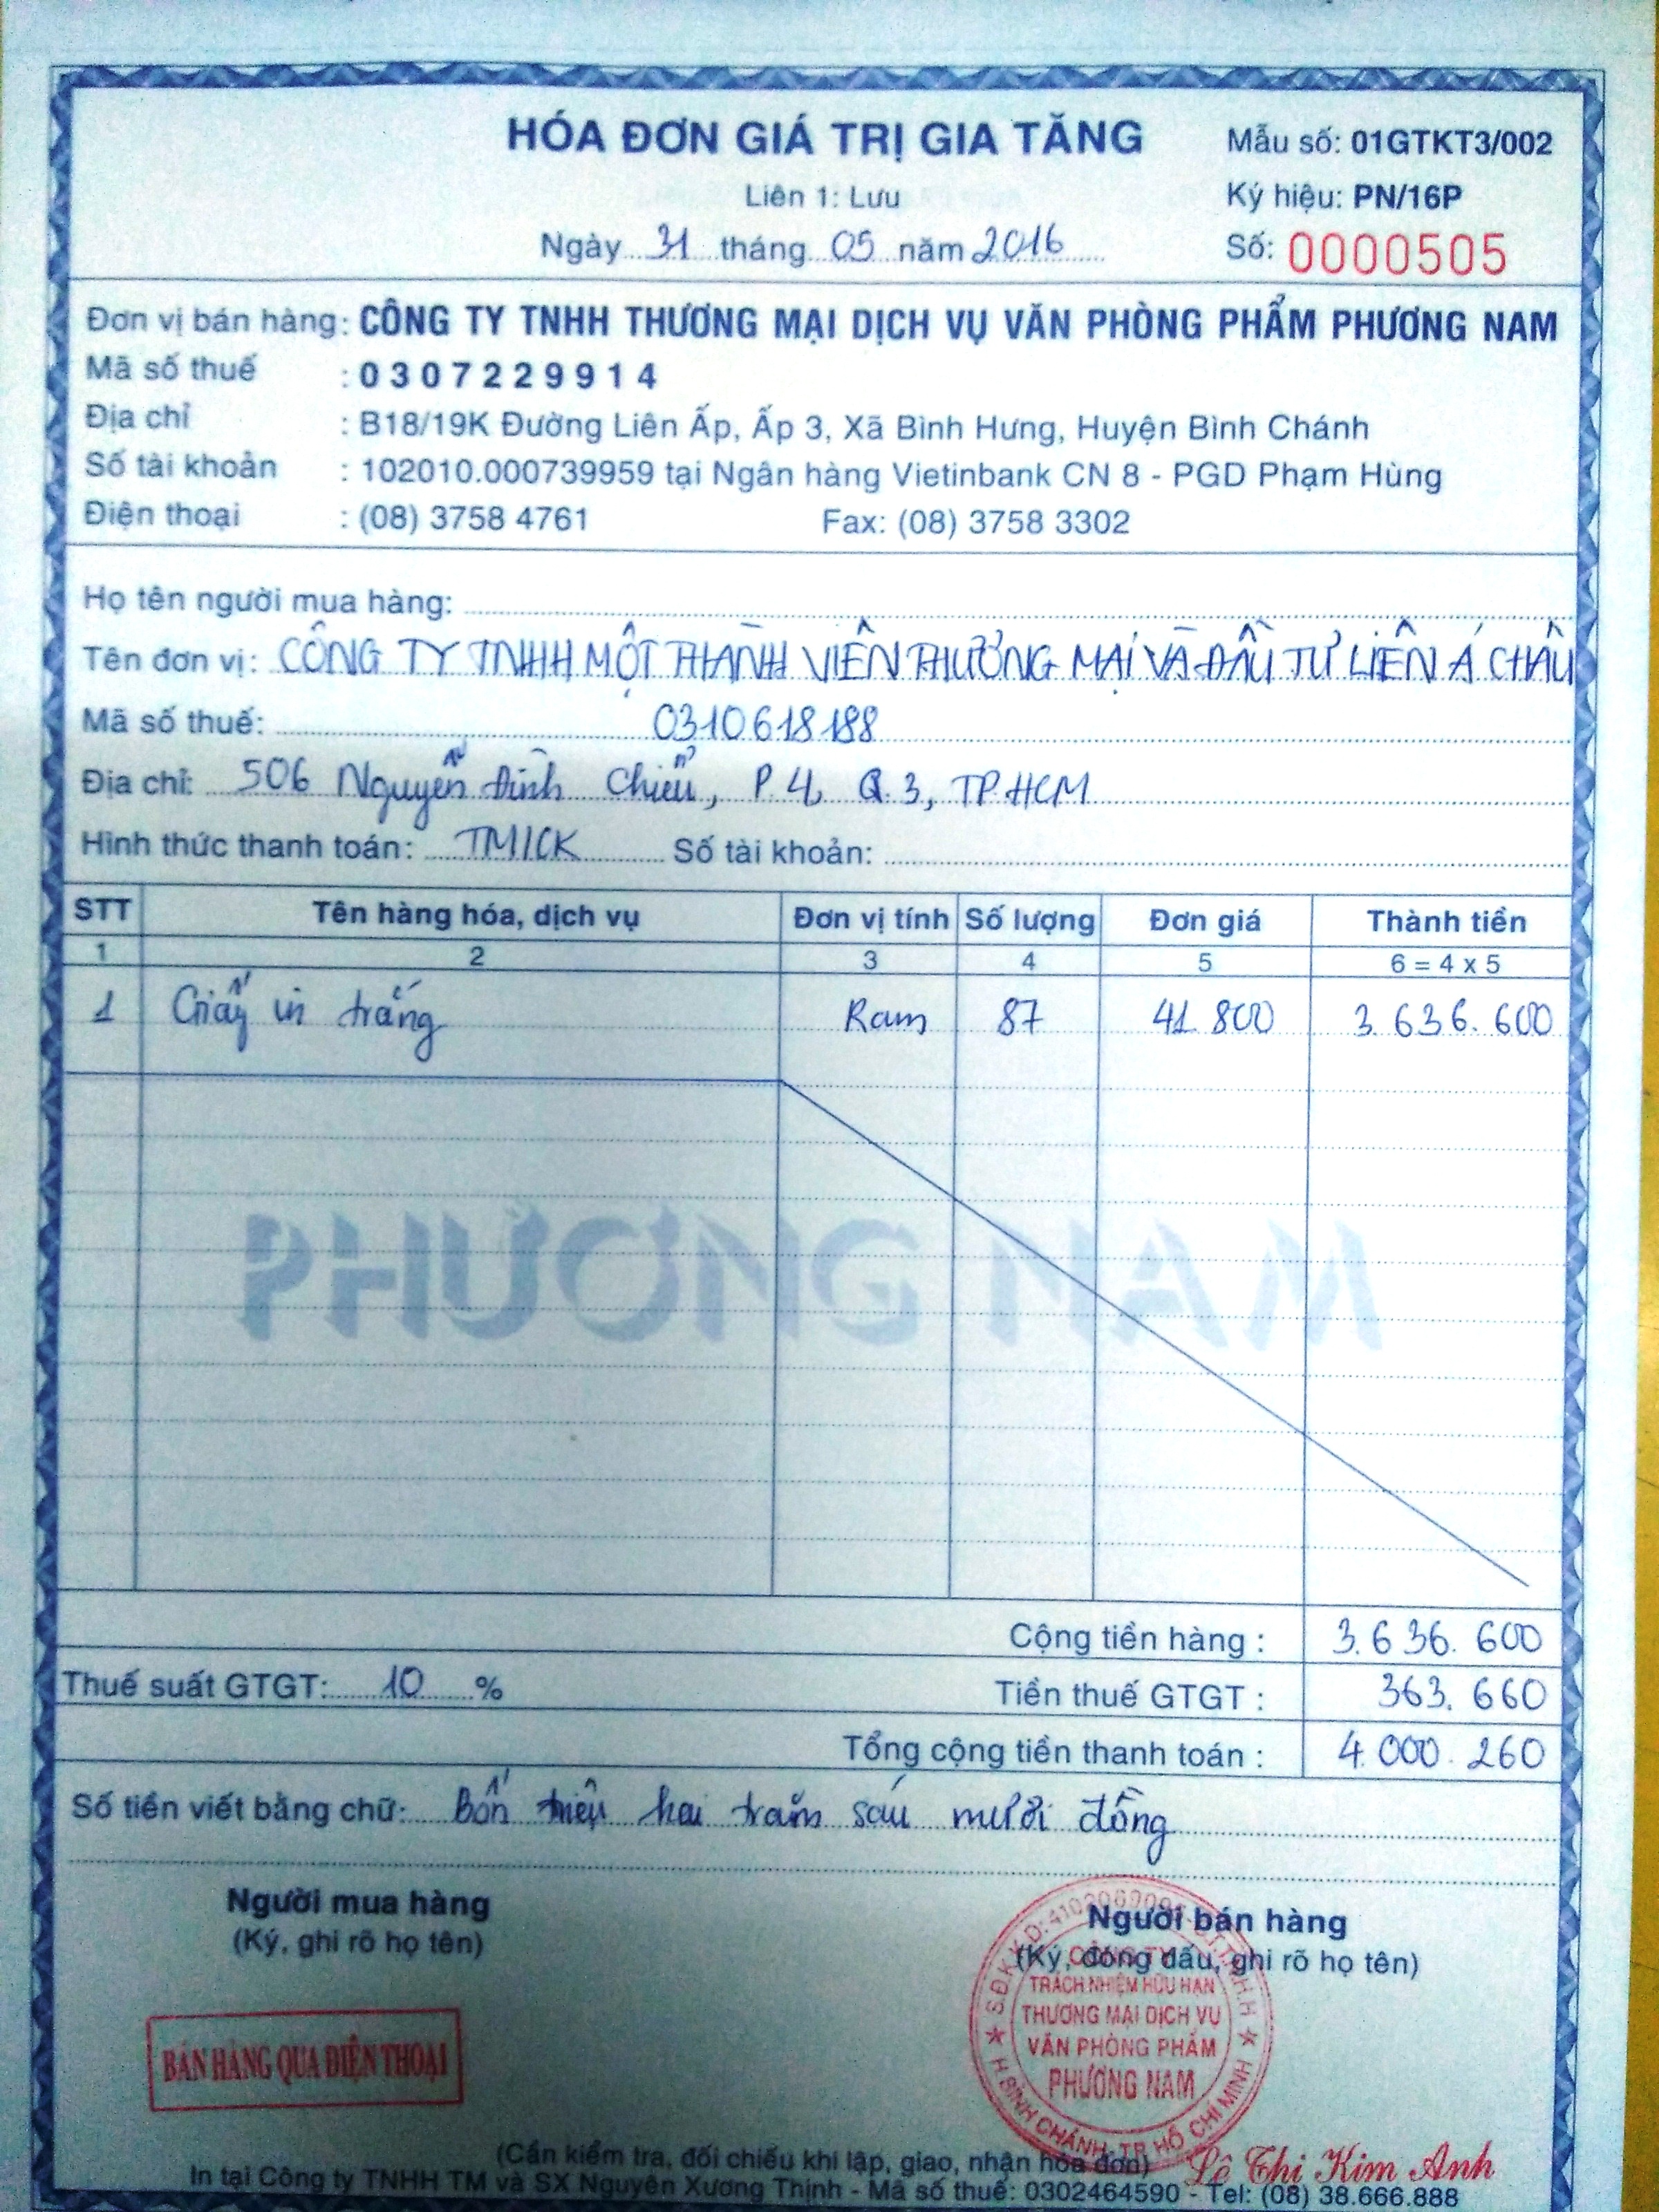 HÓA ĐƠN GIÁ TRỊ GIA TĂNG
Mẫu số: 01GTKT3/002
Liên 1: Lưu
Ký hiệu: PN/16P
Ngày 31 tháng 05 năm 2016
Số: 0000505
Đơn vị bán hàng: CÔNG TY TNHH THƯƠNG MẠI DỊCH VỤ VĂN PHÒNG PHẨM PHƯƠNG NAM
Mã số thuế : 0307229914
Địa chỉ : B18/19K Đường Liên Ấp, Ấp 3, Xã Bình Hưng, Huyện Bình Chánh
Số tài khoản : 102010.000739959 tại Ngân hàng Vietinbank CN 8 - PGD Phạm Hùng
Điện thoại : (08) 3758 4761 Fax: (08) 3758 3302
Họ tên người mua hàng:
Tên đơn vị: CÔNG TY TNHH MỘT THÀNH VIÊN THƯƠNG MẠI VÀ ĐẦU TƯ LIÊN Á CHÂU
Mã số thuế: 0310618188
Địa chỉ: 506 Nguyễn Đình Chiểu, P.4, Q.3, TP.HCM
Hình thức thanh toán: TM/CK Số tài khoản:
STT Tên hàng hóa, dịch vụ Đơn vị tính Số lượng Đơn giá Thành tiền
1 2 3 4 5 6 = 4 x 5
1 Giấy in trắng Ram 87 41.800 3.636.600
PHƯƠNG NAM
Cộng tiền hàng : 3.636.600
Thuế suất GTGT: 10 % Tiền thuế GTGT : 363.660
Tổng cộng tiền thanh toán : 4.000.260
Số tiền viết bằng chữ: Bốn triệu hai trăm sáu mươi đồng
Người mua hàng
(Ký, ghi rõ họ tên)
Người bán hàng
(Ký, đóng dấu, ghi rõ họ tên)
BÁN HÀNG QUA ĐIỆN THOẠI
CÔNG TY
TRÁCH NHIỆM HỮU HẠN
THƯƠNG MẠI DỊCH VỤ
VĂN PHÒNG PHẨM
PHƯƠNG NAM
H.BÌNH CHÁNH-TP.HỒ CHÍ MINH
Lê Thị Kim Anh
(Cần kiểm tra, đối chiếu khi lập, giao, nhận hóa đơn)
In tại Công ty TNHH TM và SX Nguyên Xương Thịnh - Mã số thuế: 0302464590 - Tel: (08) 38.666.888